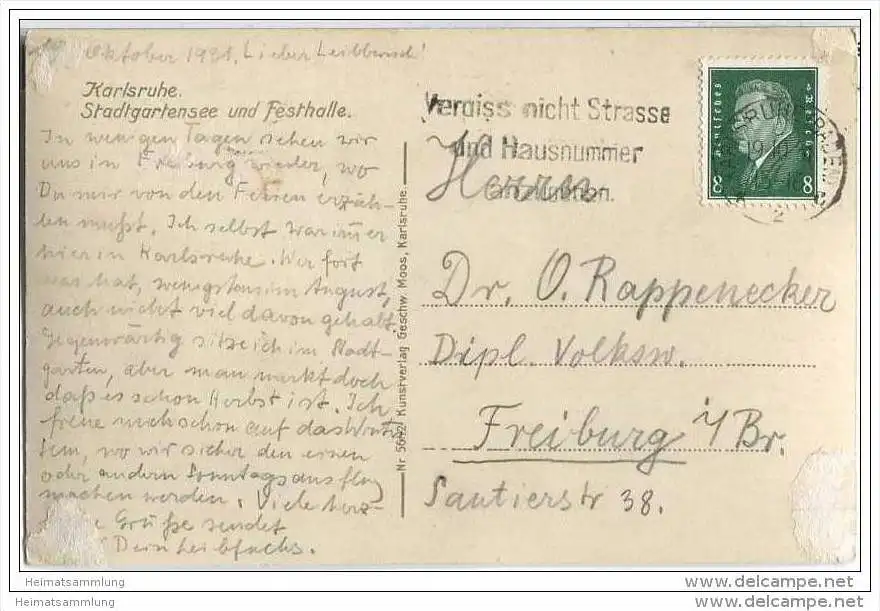 Oktober 1931, Lieber Leibbursch!
Karlsruhe.
Stadtgartensee und Festhalle.
In wenigen Tagen sehen wir
uns in Freiburg wieder, wo
Du mir von den Ferien erzäh-
len mußt. Ich selbst war immer
hier in Karlsruhe. Wer fort
war hat, wenigstens im August,
auch nicht viel davon gehabt.
Gegenwärtig sitze ich im Stadt-
garten, aber man merkt doch
daß es schon Herbst ist. Ich
freue mich schon auf das Winter
Sem, wo wir sicher den einen
oder andern Sonntagsausflug
machen werden. Viele herz-
Grüße sendet
Dein Leibfuchs.
Nr 5642 Kunstverlag Geschw. Moos, Karlsruhe.
Vergiss nicht Strasse
und Hausnummer
anzugeben.
Deutsches Reich
8 8
KARLSRUHE (BADEN)
2
Herrn
Dr. O. Rappenecker
Dipl. Volksw.
Freiburg i/Br.
Sautierstr 38.
Heimatsammlung
Heimatsammlung
www.delcampe.net
www.delcampe.net